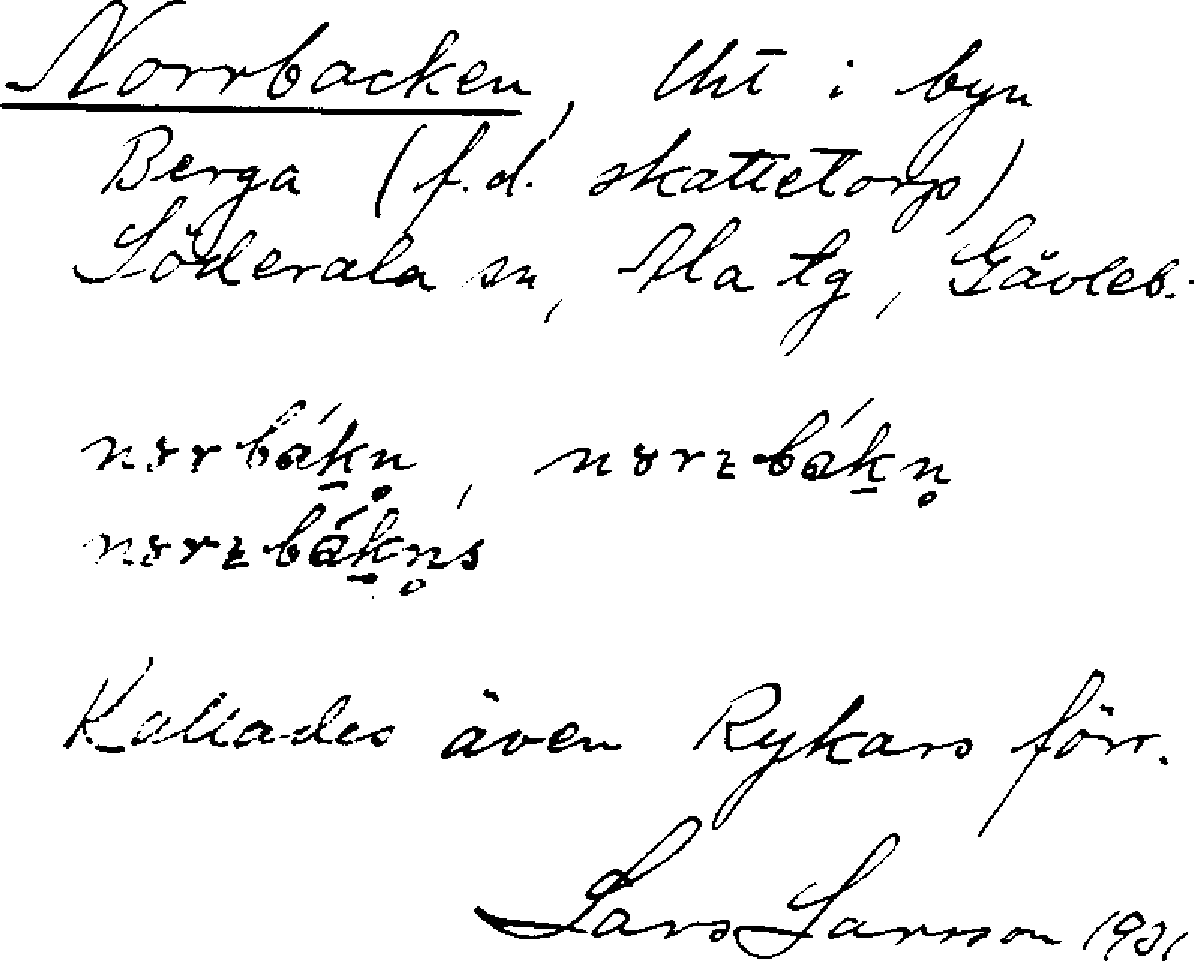 Norrbacken, lht i byn
Berga (f.d. skattetorp)
Söderala sn, Ala tg, Gävleb.
Kallades även Rykars förr.
Lars Larsson 1931